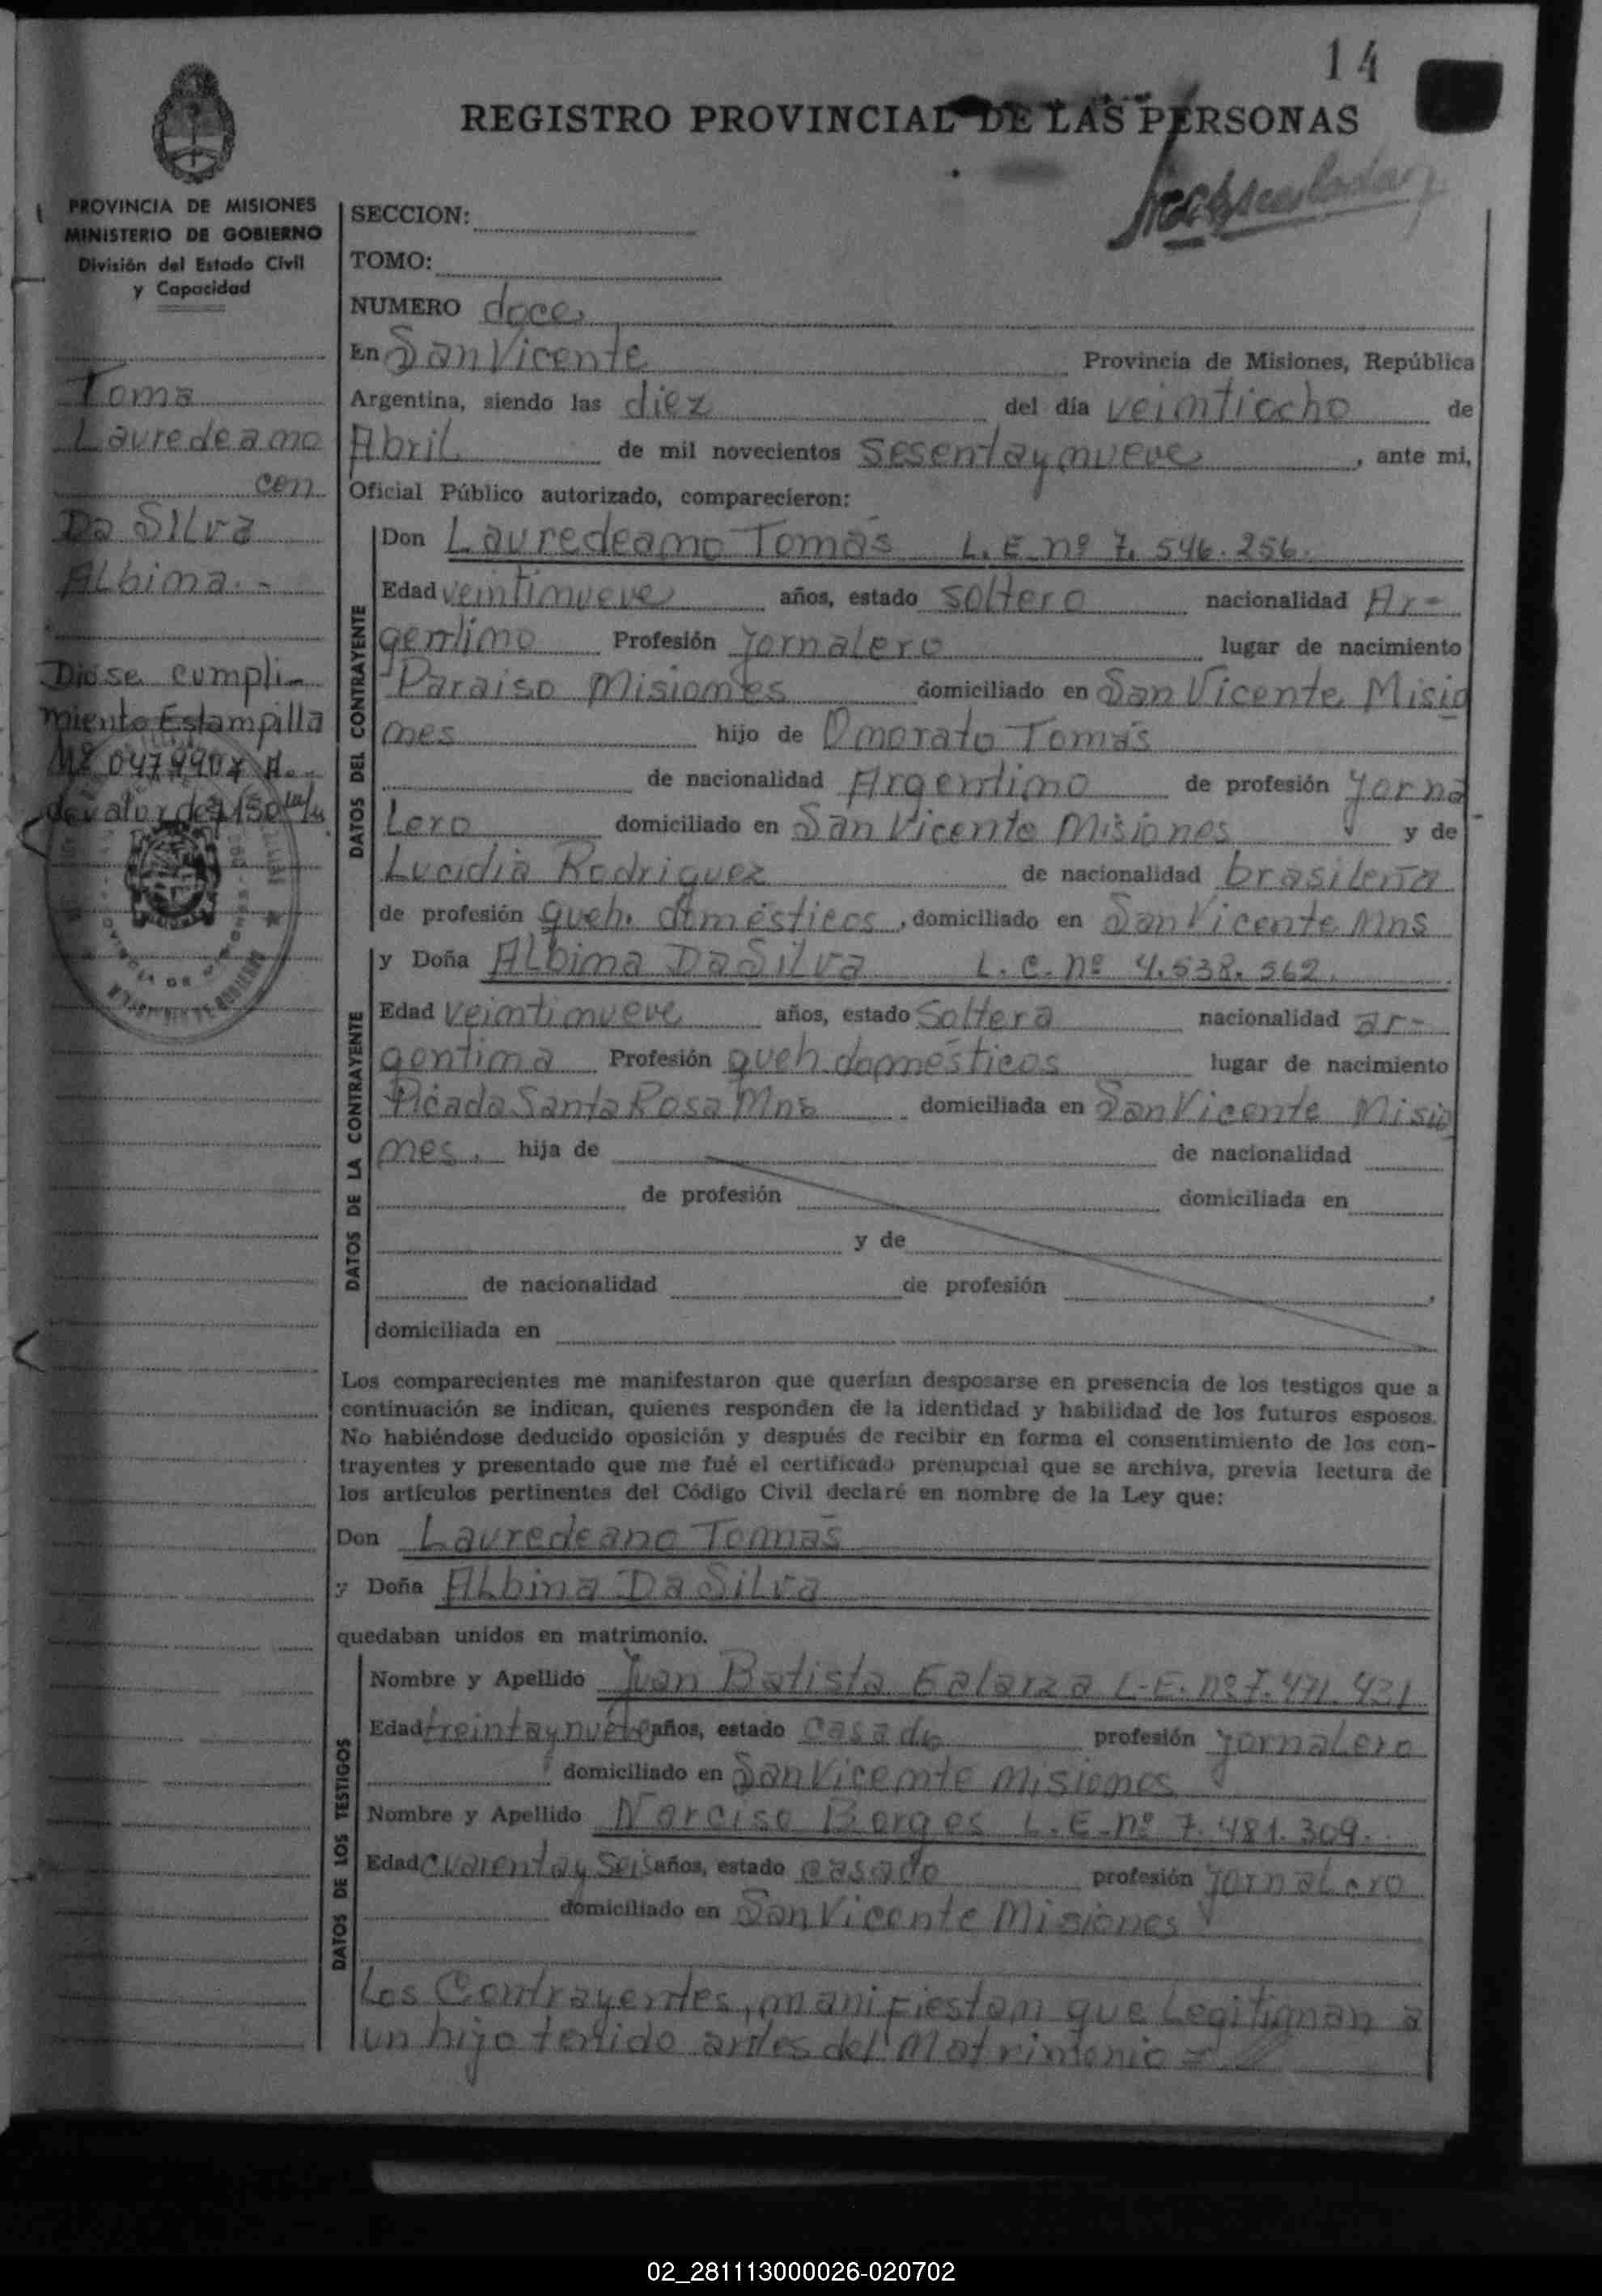 14
REGISTRO PROVINCIAL DE LAS PERSONAS
PROVINCIA DE MISIONES
MINISTERIO DE GOBIERNO
División del Estado Civil
y Capacidad
SECCION:
TOMO:
NUMERO doce
En San Vicente Provincia de Misiones, República
Argentina, siendo las diez del día veintiocho de
Abril de mil novecientos sesenta y nueve, ante mi,
Oficial Público autorizado, comparecieron:
Toma
Lauredeano
con
Da Silva
Albina.-
Dióse cumpli-
miento Estampilla
de valor de $ 150
DATOS DEL CONTRAYENTE
Don Lauredeano Tomás L.E nº 7.546.256.
Edad veintinueve años, estado soltero nacionalidad Ar-
gentino Profesión jornalero lugar de nacimiento
Paraiso Misiones domiciliado en San Vicente Misio
nes hijo de Onorato Tomás
de nacionalidad Argentino de profesión jorna
lero domiciliado en San Vicente Misiones y de
Lucidia Rodriguez de nacionalidad brasileña
de profesión queh. domésticos, domiciliado en San Vicente Mns
DATOS DE LA CONTRAYENTE
y Doña Albina Da Silva L.C. nº 4.538.562.
Edad veintinueve años, estado Soltera nacionalidad ar-
gentina Profesión queh. domésticos lugar de nacimiento
Picada Santa Rosa Mns domiciliada en San Vicente Misio
nes. hija de de nacionalidad
de profesión domiciliada en
y de
de nacionalidad de profesión
domiciliada en
Los comparecientes me manifestaron que querían desposarse en presencia de los testigos que a
continuación se indican, quienes responden de la identidad y habilidad de los futuros esposos.
No habiéndose deducido oposición y después de recibir en forma el consentimiento de los con-
trayentes y presentado que me fué el certificado prenupcial que se archiva, previa lectura de
los artículos pertinentes del Código Civil declaré en nombre de la Ley que:
Don Lauredeano Tomás
y Doña Albina Da Silva
quedaban unidos en matrimonio.
DATOS DE LOS TESTIGOS
Nombre y Apellido Juan Batista Galarza L.E. nº 7.471.421
Edad treinta y nueve años, estado casado profesión jornalero
domiciliado en San Vicente Misiones
Nombre y Apellido Narciso Borges L.E. nº 7.481.309.
Edad cuarenta y seis años, estado casado profesión jornalero
domiciliado en San Vicente Misiones
Los Contrayentes, manifiestan que Legitiman a
un hijo tenido antes del Matrimonio
02_281113000026-020702